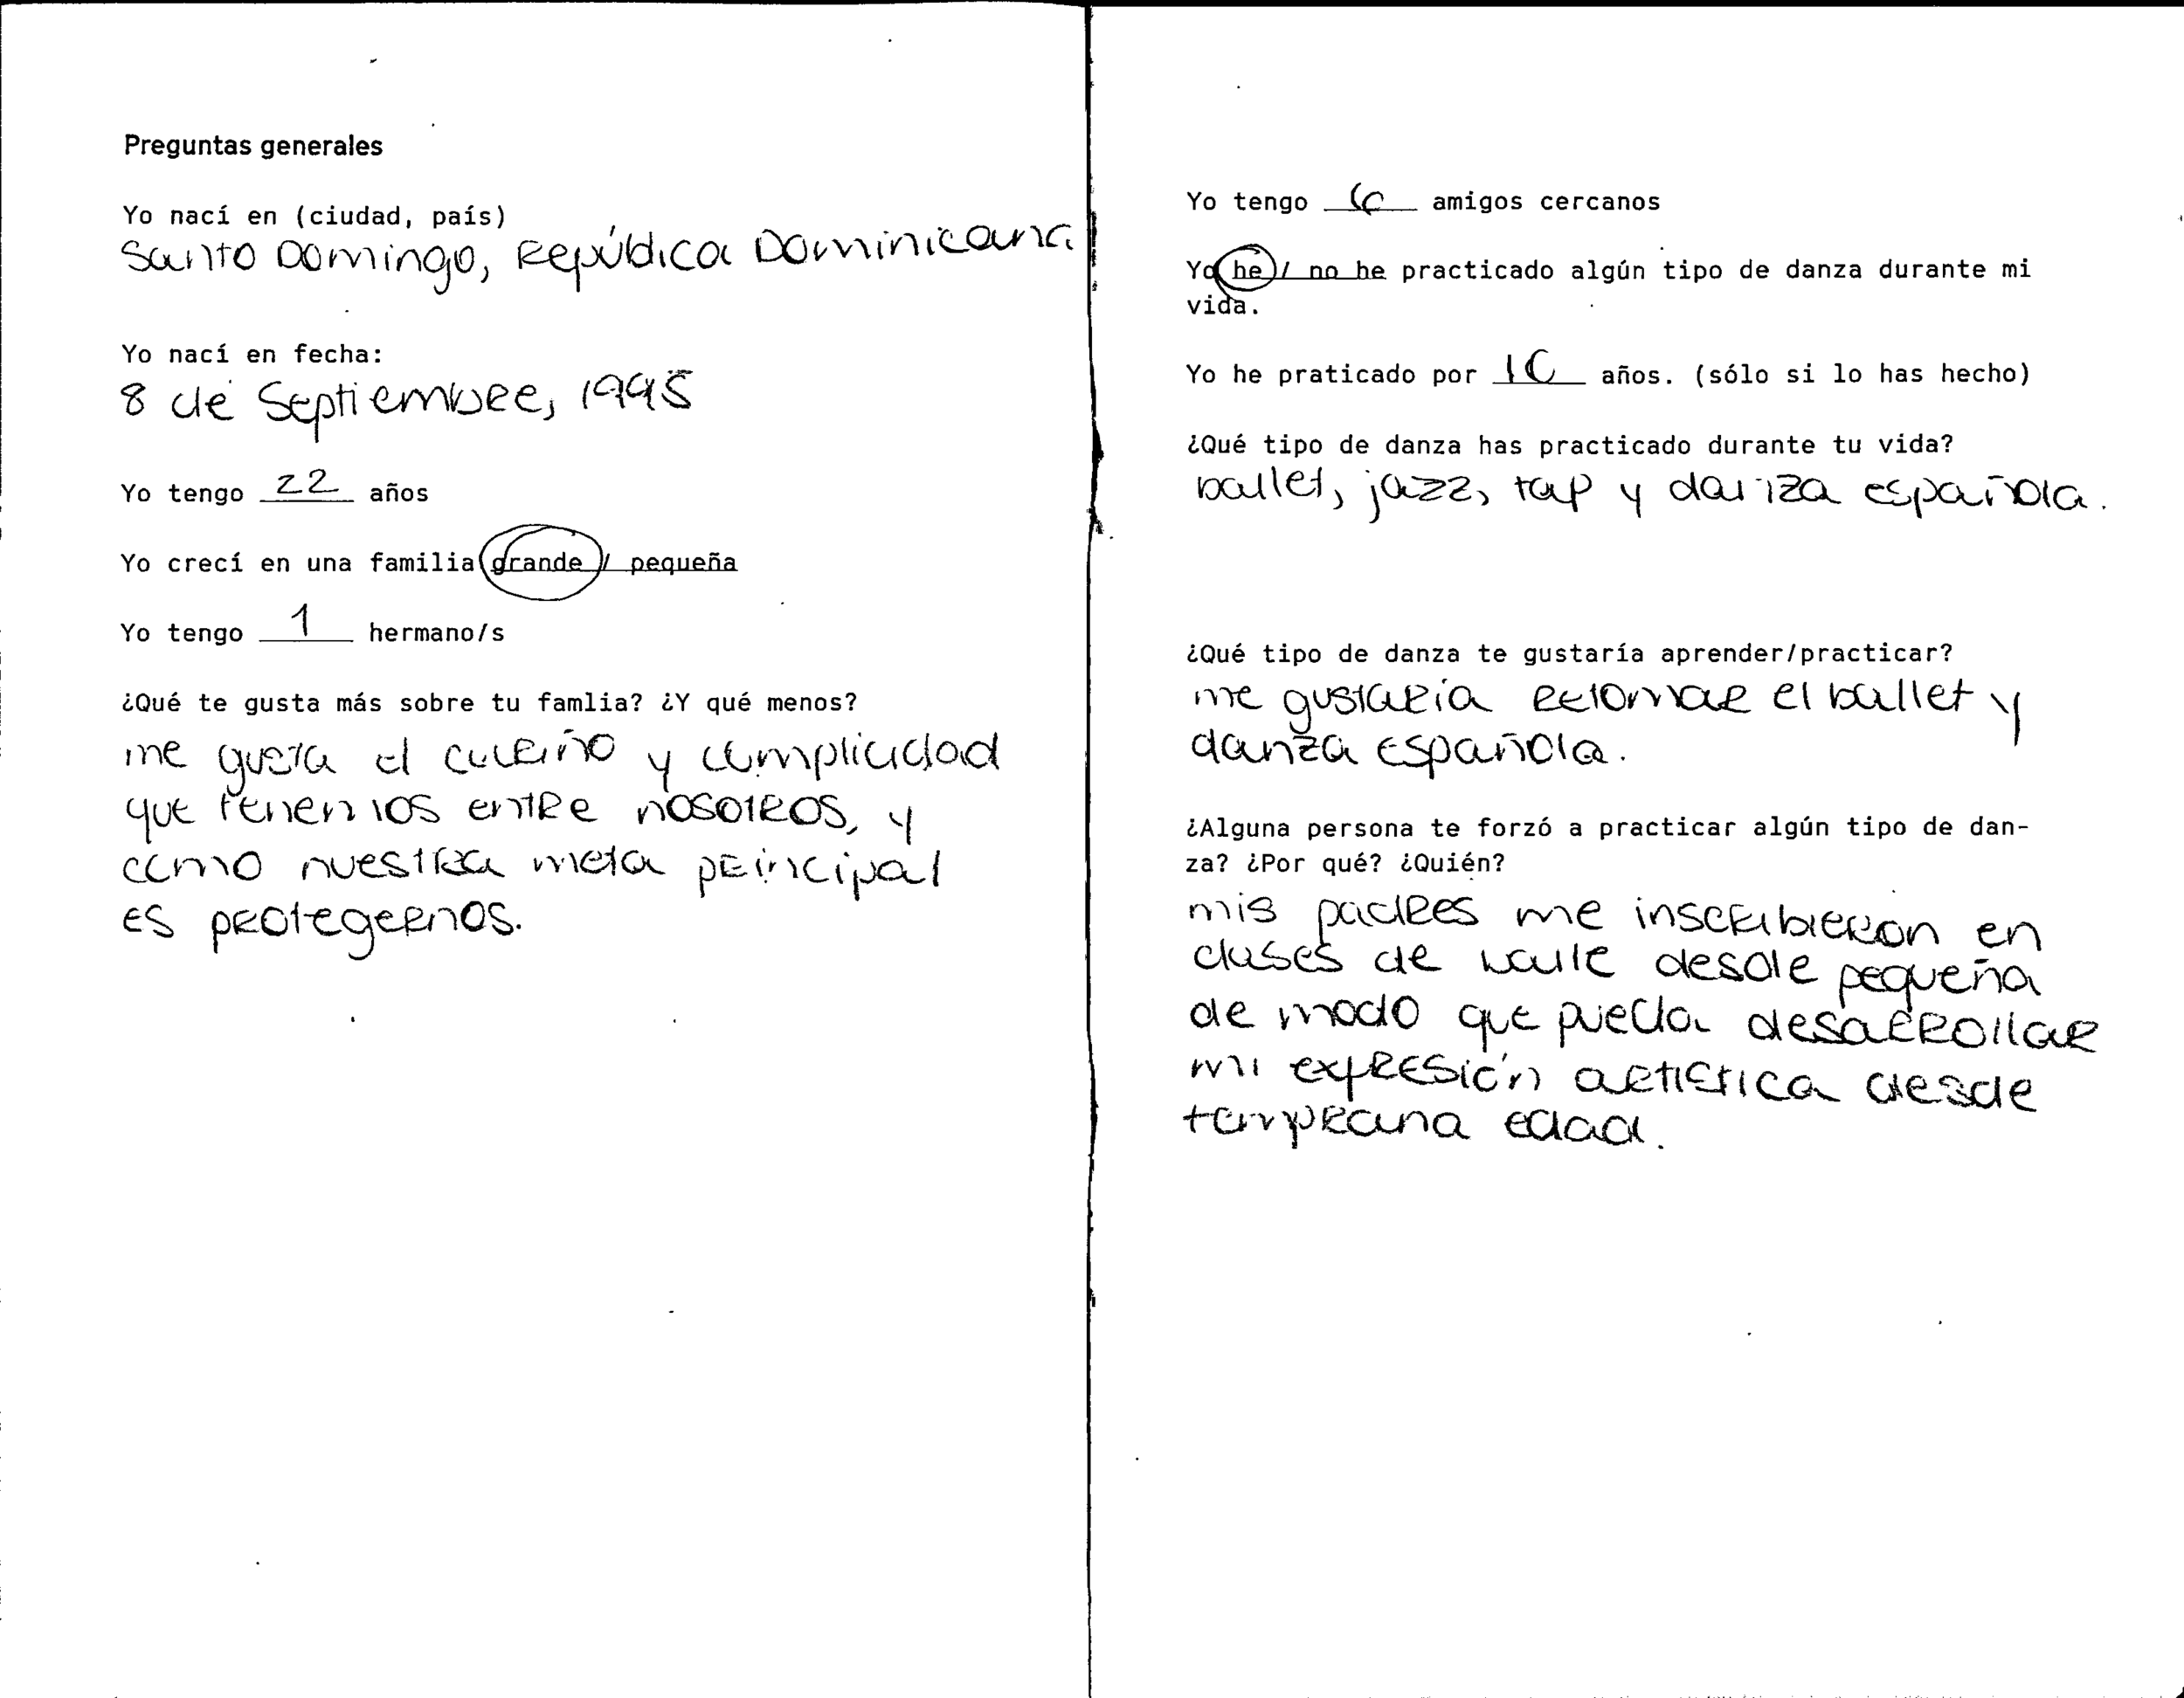 Preguntas generales
Yo nací en (ciudad, país)
Santo Domingo, República Dominicana
Yo nací en fecha:
8 de Septiembre, 1995
Yo tengo 22 años
Yo crecí en una familia grande / pequeña
Yo tengo 1 hermano/s
¿Qué te gusta más sobre tu famlia? ¿Y qué menos?
me gusta el cariño y complicidad
que tenemos entre nosotros, y
como nuestra meta principal
es protegernos.
Yo tengo 6 amigos cercanos
Yo he / no he practicado algún tipo de danza durante mi
vida.
Yo he praticado por 10 años. (sólo si lo has hecho)
¿Qué tipo de danza has practicado durante tu vida?
ballet, jazz, tap y danza española.
¿Qué tipo de danza te gustaría aprender/practicar?
me gustaría retomar el ballet y
danza española.
¿Alguna persona te forzó a practicar algún tipo de dan-
za? ¿Por qué? ¿Quién?
mis padres me inscribieron en
clases de baile desde pequeña
de modo que pueda desarrollar
mi expresión artística desde
temprana edad.